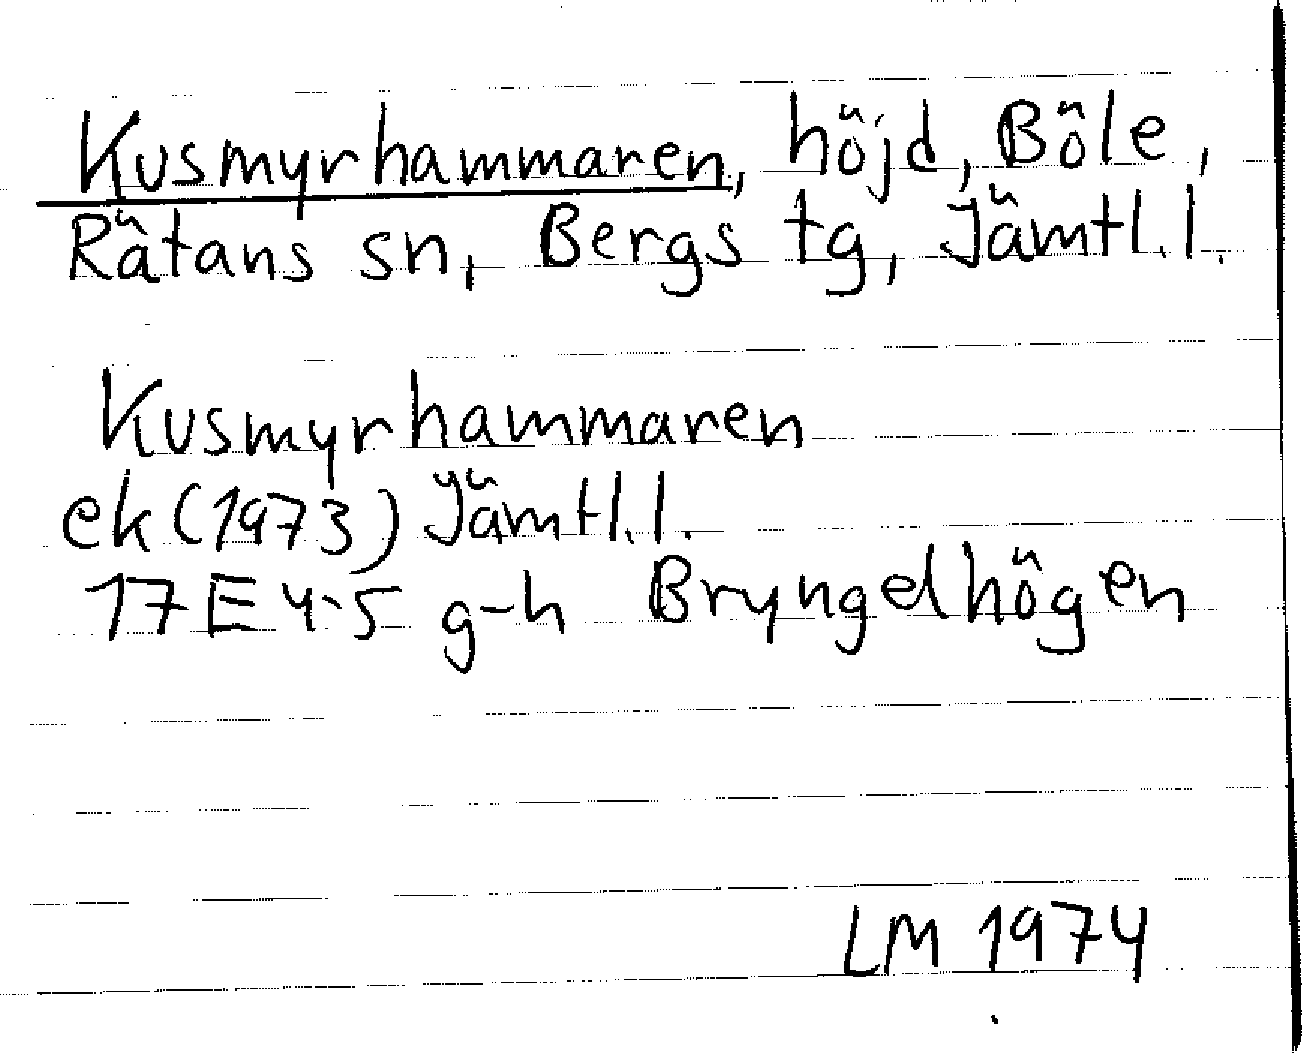 Kusmyrhammaren, höjd, Böle,
Rätans sn, Bergs tg, Jämtl.l.
Kusmyrhammaren
ek (1973) Jämtl.l.
17E 4-5 g-h Bryngelhögen
LM 1974